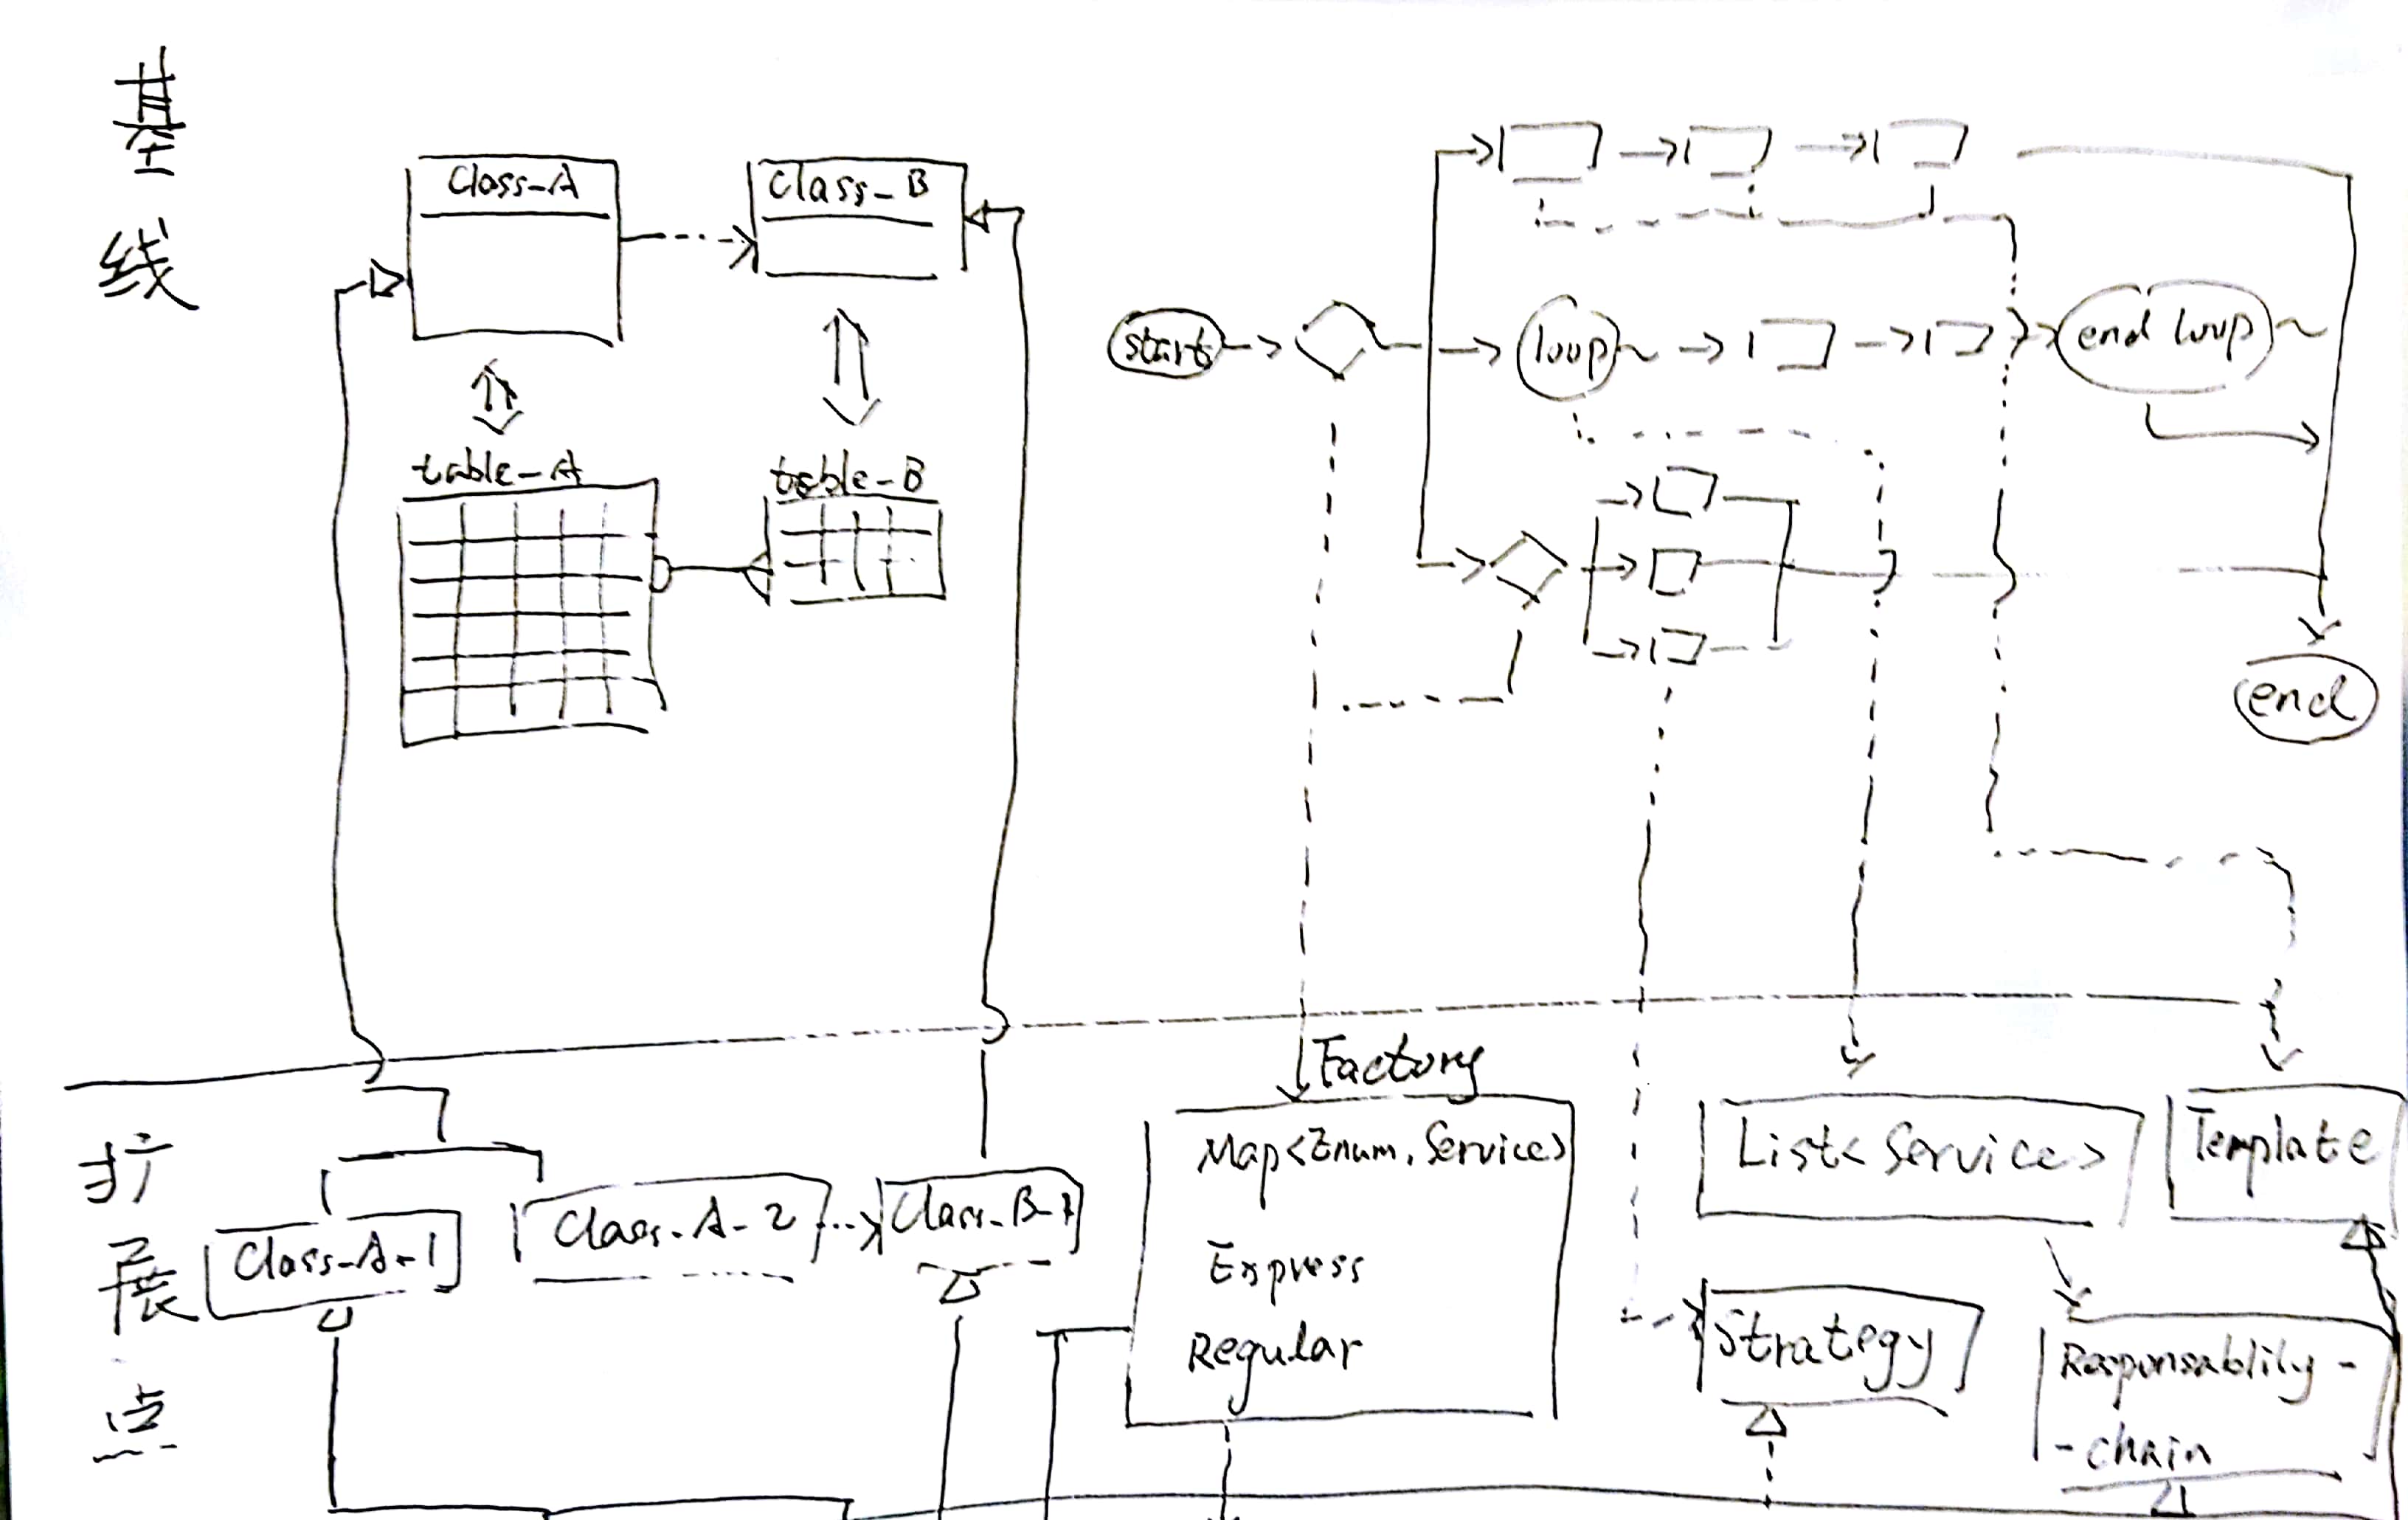 基线
Class-A
Class-B
table-A
table-B
start
loop
end loop
end
扩展点
Class-A-1
Class-A-2
Class-B-1
Factory
Map<Enum, Service>
Express
Regular
List<Service>
Template
Strategy
Responsablily-
-chain